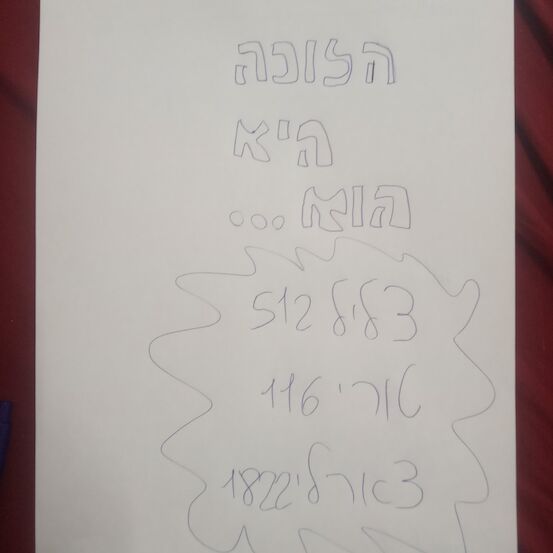 הזוכה
היא
הוא...
צליל 512
טורי 116
צארלי 1822